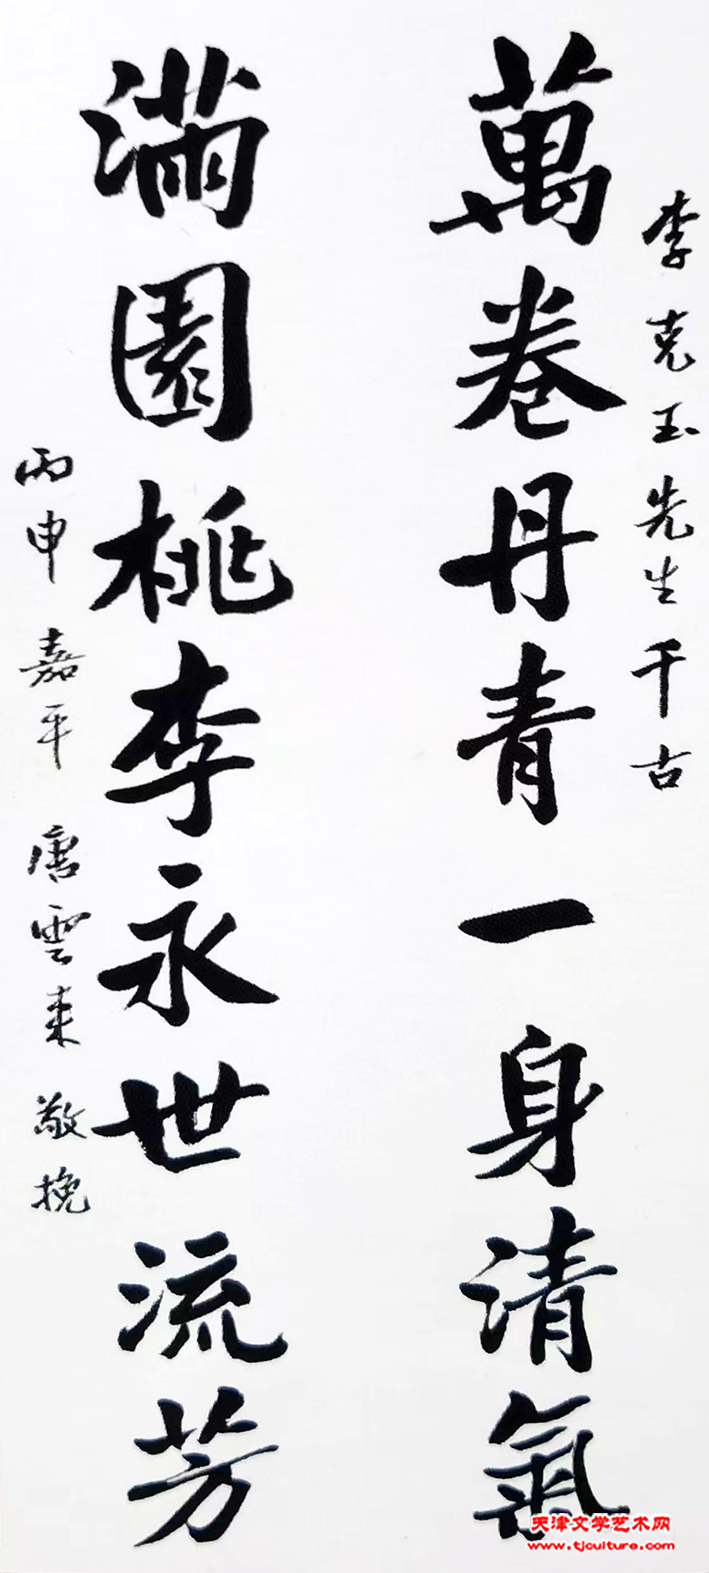 李克玉先生千古
萬卷丹青一身清氣
滿園桃李永世流芳
丙申嘉平 唐雲來敬挽
天津文学艺术网
www.tjculture.com